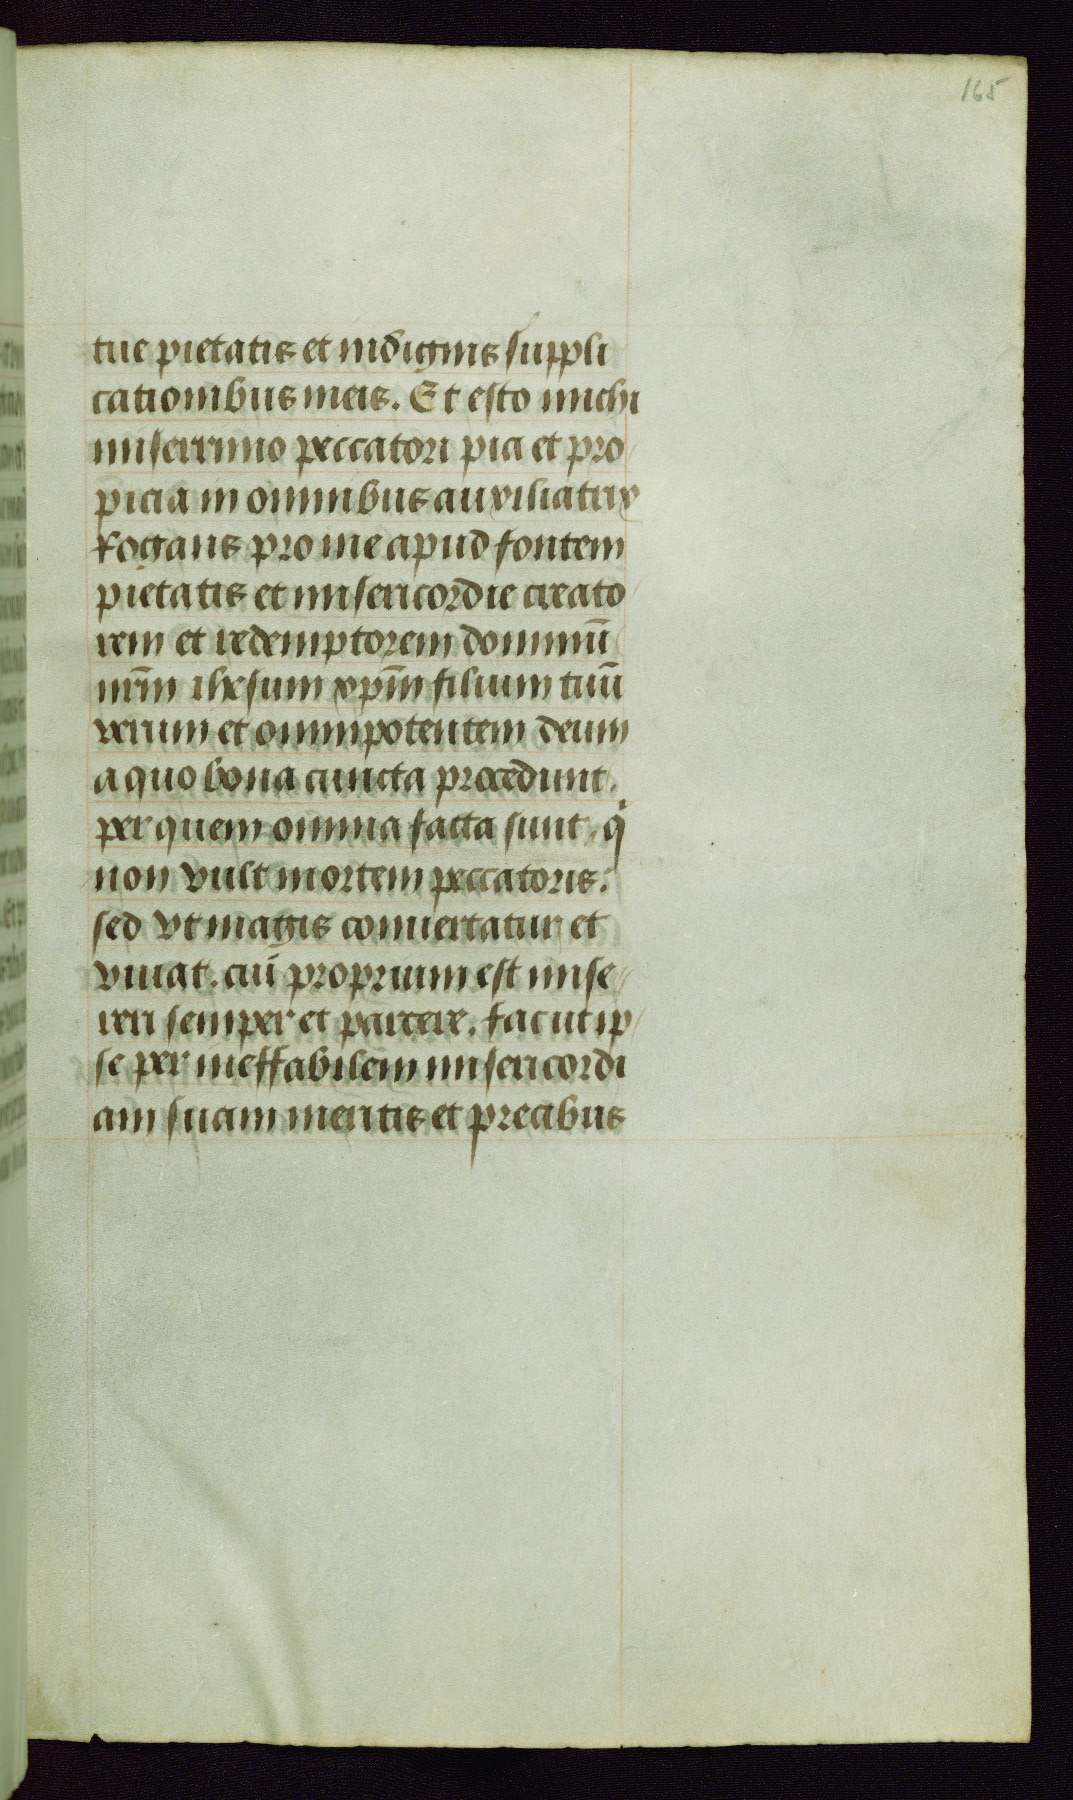 165
tue pietatis et indignis suppli
cationibus meis. Et esto michi
miserrimo peccatori pia et pro
picia in omnibus auxiliatrix
Rogans pro me apud fontem
pietatis et misericordie creato
rem et redemptorem dominū
nr̄m ihesum xpīm filium tuū
verum et omnipotentem deum
a quo bona cuncta procedunt.
per quem omnia facta sunt, qͥ
non vult mortem peccatoris.
sed vt magis conuertatur et
viuat. cuī proprium est mise
reri semper et parcere. fac ut ip
se per ineffabilem misericordi
am suam meritis et precibus